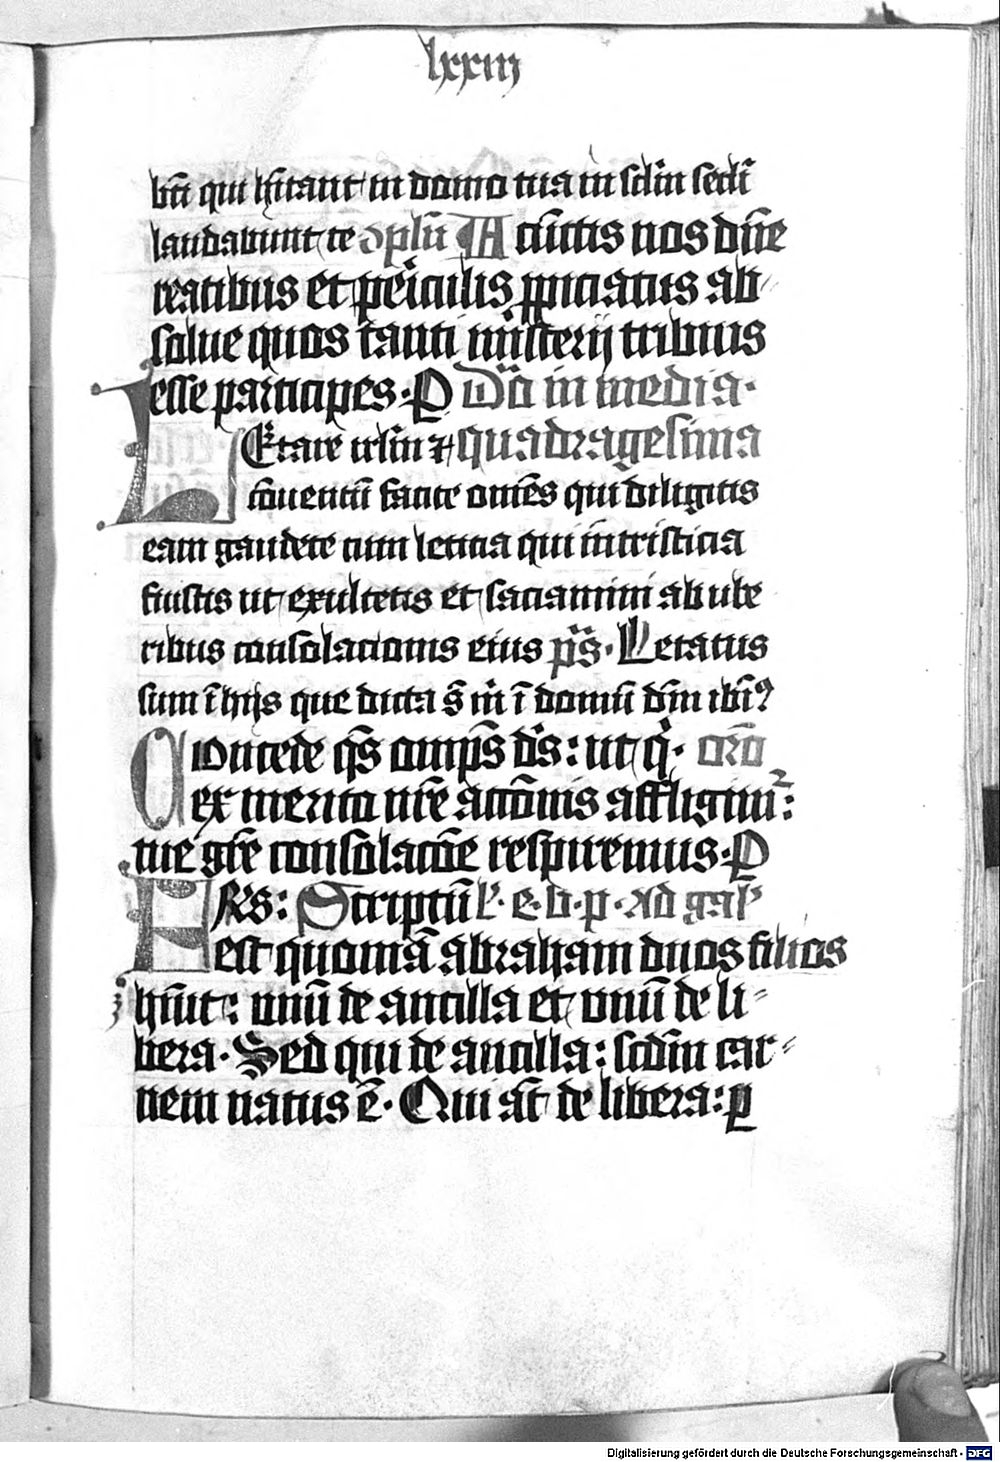 lxxiii
bn̄ti qui hītant in domo tua in sclm̄ scl̄i
laudabunt te Compln̄ A cūctis nos dn̄e
reatibus et pericl̄is ppiciatus ab
solue quos tanti misterij tribuis
esse participes. P Dn̄ica in media
Letare irlm̄ et quadragesima
cōuentū facite omēs qui diligitis
eam gaudete cum leticia qui in tristicia
fuistis ut exultetis et saciamini ab ube
ribus consolacionis eius ps̄. Letatus
sum ī hijs que dicta s̄ m̄ ī domū dn̄i ibi9
Concede qs̄ omps̄ ds̄: ut q̄. orō
ex merito nr̄e actōnis affligim̄:
tue gr̄e consolacōe respiremus. P
Frēs: Scriptū l. e. b. p. Ad gal
est quoniā abraham duos filios
hūit: unū de ancilla et unū de li
bera. Sed qui de ancilla: scdm̄ car
nem natus ē. Qui aūt de libera: p
Digitalisierung gefördert durch die Deutsche Forschungsgemeinschaft - DFG